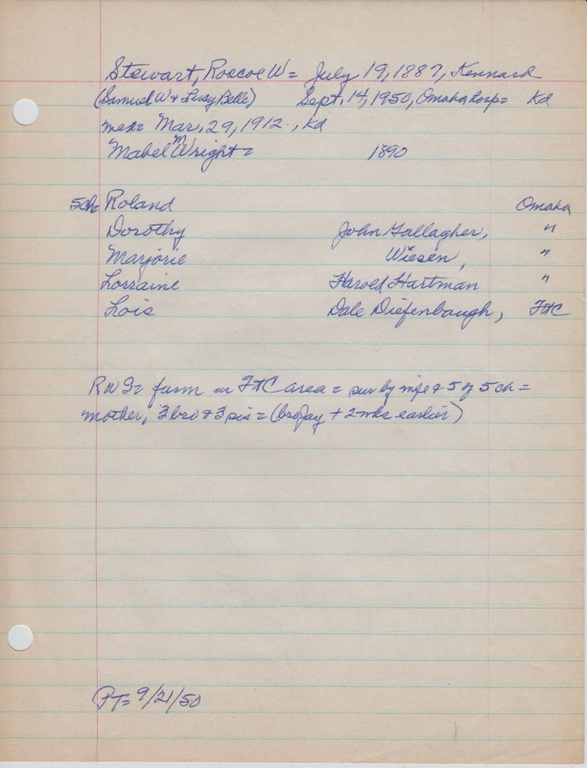 Stewart, Roscoe W = July 19, 1887, Kennard
(Samuel W + Belle) Sept. 14, 1950, Omaha Hosp = Kd
med= Mar. 29, 1912., Kd
Mabel M Wright = 1890
5ch= Roland Omaha
Dorothy John Gallagher, "
Marjorie Wiesen, "
Lorraine Harold Hartman "
Lois Dale Diefenbaugh, FtC
RWS= farm in FtC area = sur by wife & 5 of 5 ch =
mother, 3 bro & 3 sis = (bro Jay + 2 wks earlier)
PT= 9/21/50